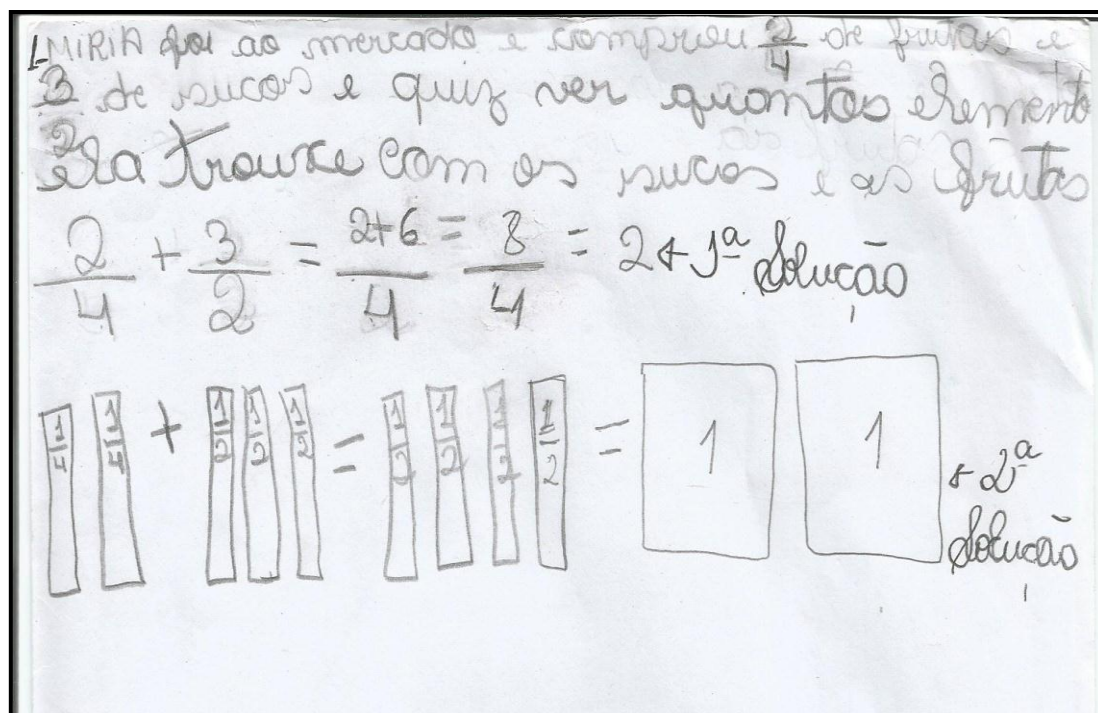 1-MIRIA foi ao mercado e comprou 2/4 de frutas e
3/2 de sucos e quiz ver quantos elemento
ela trouxe com os sucos e as frutas
2/4 + 3/2 = 2+6/4 = 8/4 = 2 ← 1ª Solução
1/4 1/4 + 1/2 1/2 1/2 = 1/2 1/2 1/2 1/2 = 1 1 ← 2ª
Solução